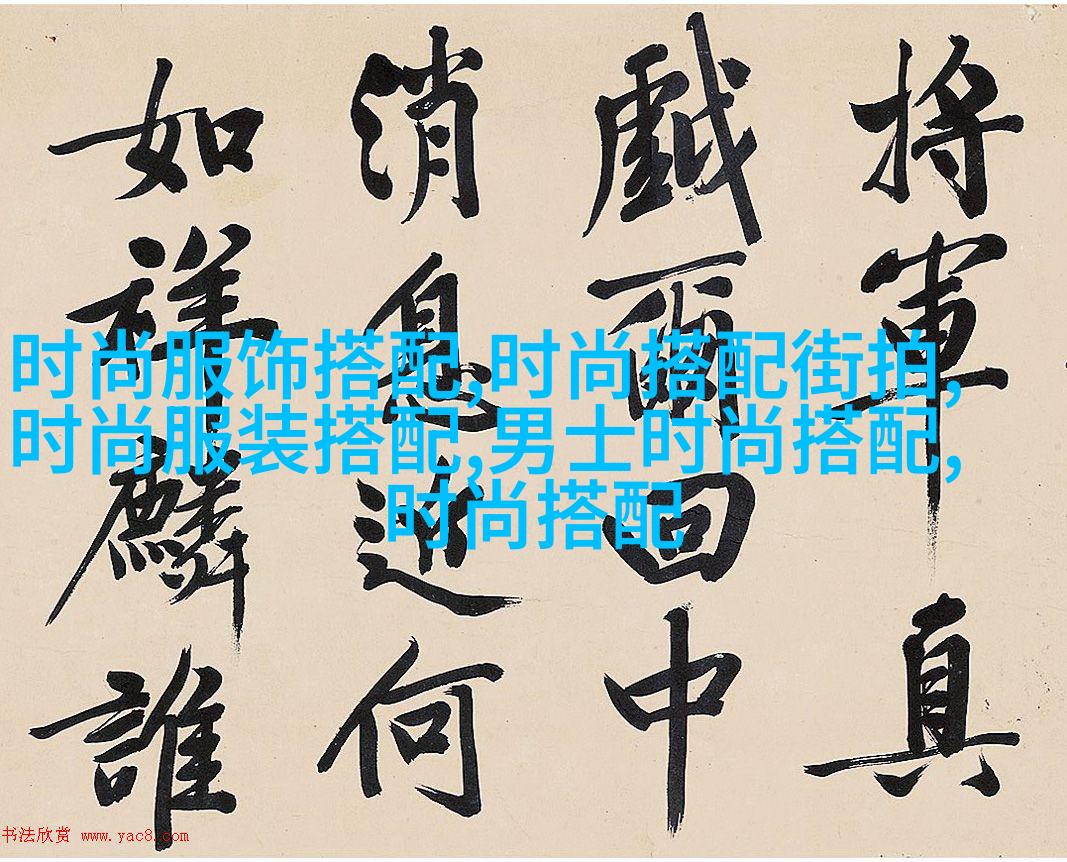 将軍真
戲爾回中
消息近何
如祥麟誰
时尚服饰搭配,时尚搭配街拍,
时尚服装搭配,男士时尚搭配,
时尚搭配
书法欣赏 www.yac8.com